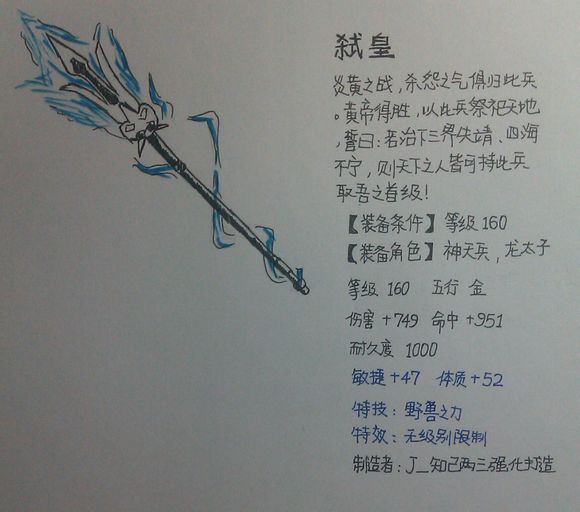 弑皇
炎黄之战，杀怨之气俱归此兵
。黄帝得胜，以此兵祭祀天地
，誓曰：若治下三界失靖、四海
不宁，则天下之人皆可持此兵
取吾之首级！
【装备条件】等级160
【装备角色】神天兵，龙太子
等级 160 五行 金
伤害 +749 命中 +951
耐久度 1000
敏捷 +47 体质 +52
特技：野兽之力
特效：无级别限制
制造者：J_知己两三强化打造